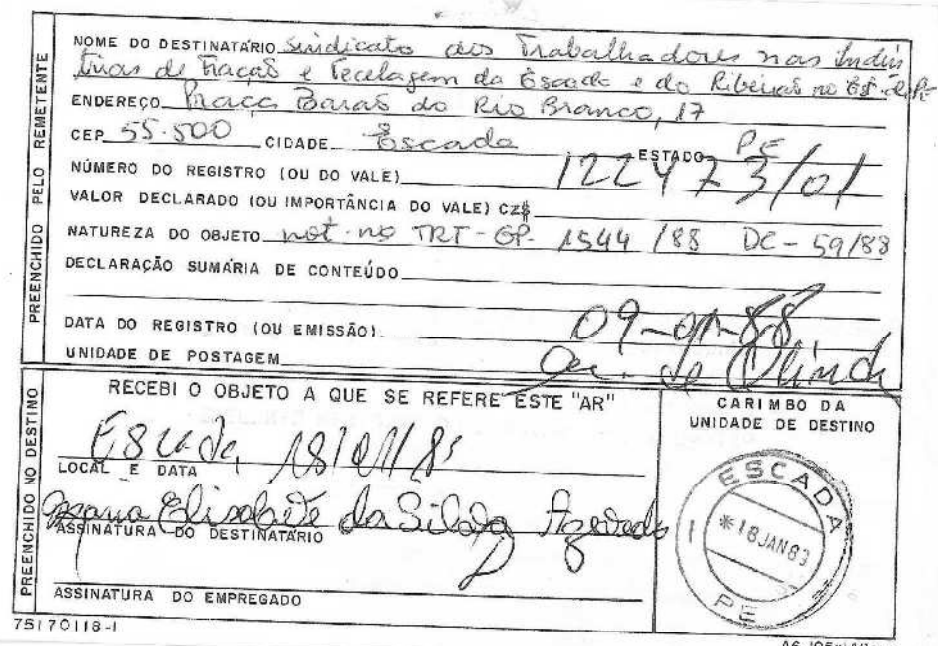 PREENCHIDO PELO REMETENTE
NOME DO DESTINATÁRIO Sindicato dos Trabalhadores nas Indús
trias de Fiação e Tecelagem da Escada e do Ribeirão no Est. de Pe
ENDEREÇO Praça Barão do Rio Branco, 17
CEP 55.500 CIDADE Escada ESTADO PE
NÚMERO DO REGISTRO (OU DO VALE) 122473/01
VALOR DECLARADO (OU IMPORTÂNCIA DO VALE) CZ$
NATUREZA DO OBJETO not. no TRT-GP. 1544/88 DC-59/88
DECLARAÇÃO SUMÁRIA DE CONTEÚDO
DATA DO REGISTRO (OU EMISSÃO) 09-01-88
UNIDADE DE POSTAGEM de Olinda
PREENCHIDO NO DESTINO
RECEBI O OBJETO A QUE SE REFERE ESTE "AR"
Escada, 18/01/89
LOCAL E DATA
Maria Elisabete da Silva Azevedo
ASSINATURA DO DESTINATÁRIO
ASSINATURA DO EMPREGADO
CARIMBO DA
UNIDADE DE DESTINO
ESCADA
*18JAN89
PE
75170118-1